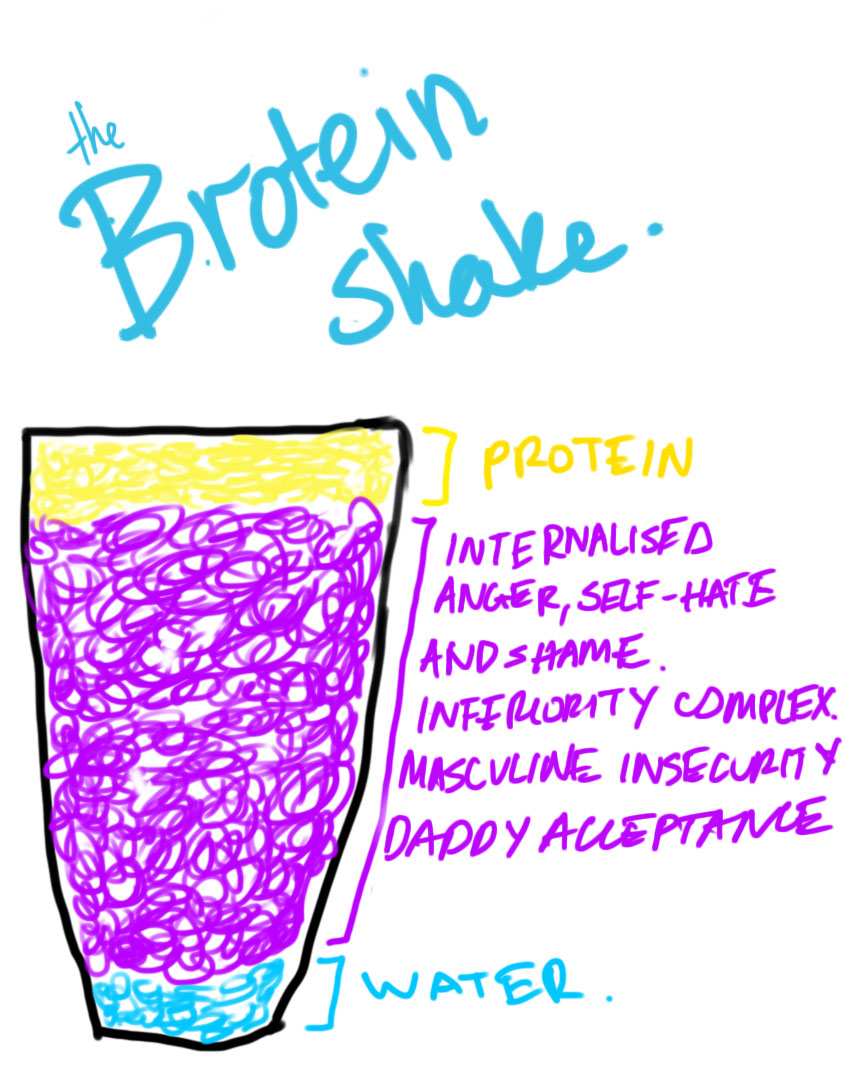 the
Brotein
shake.
PROTEIN
INTERNALISED
ANGER, SELF-HATE
AND SHAME.
INFERIORITY COMPLEX.
MASCULINE INSECURITY
DADDY ACCEPTANCE
WATER.